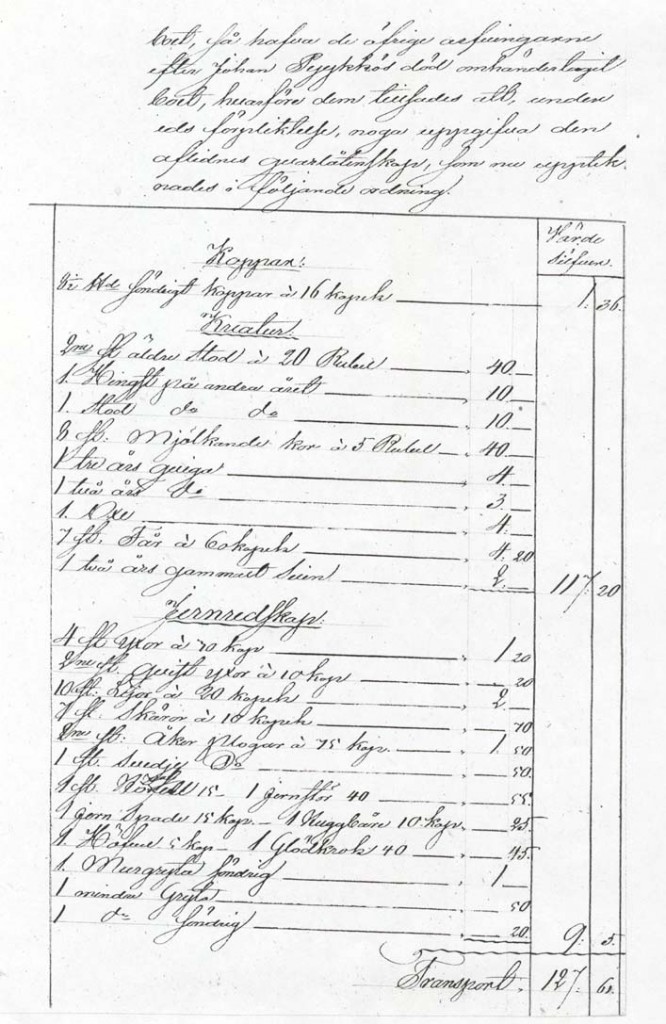 boet, så hafva de öfrige arfvingarne
efter Johan Pyykkös död omhändertagit
boet, hvarföre dem tillsades att, under
eds förpliktelse, noga uppgifva den
aflidnes qvarlåtenskap, som nu upptek-
nades i följande ordning.
Värde
Silfver.
Koppar:
8½ söndrigt koppar à 16 kopek 1. 36.
Kreatur.
2ne st äldre Stod à 20 Rubel 40.
1. Hingst på andra året 10.
1. Stod do do 10.
8 st: Mjölkande kor à 5 Rubel 40.
1 tre års qviga 4.
1 två års do 3.
1. Oxe 4.
7 st. Får à 60 kopek 4. 20
1 två års gammalt Svin 2. 117. 20
Jernredskap:
4 st yxor à 30 kop 1 20
2ne st. qvist yxor à 10 kop 20
10 st. Lijor à 20 kopek 2
7 st. Skäror à 10 kopek 70
2ne st: Åker plogar à 75 kop. 1 50
1 st. Svedje do 50.
1 st. 15 - 1 jernstör 40 55
1 jern Spade 15 kop - 1 Huggbäre 10 kop. 25
1. 5 kop - 1 Glödkrok 40 45
1. Murgryta söndrig 1
1 mindre Gryta 50
1 do söndrig 20. 9. 5.
Transport. 127. 61.